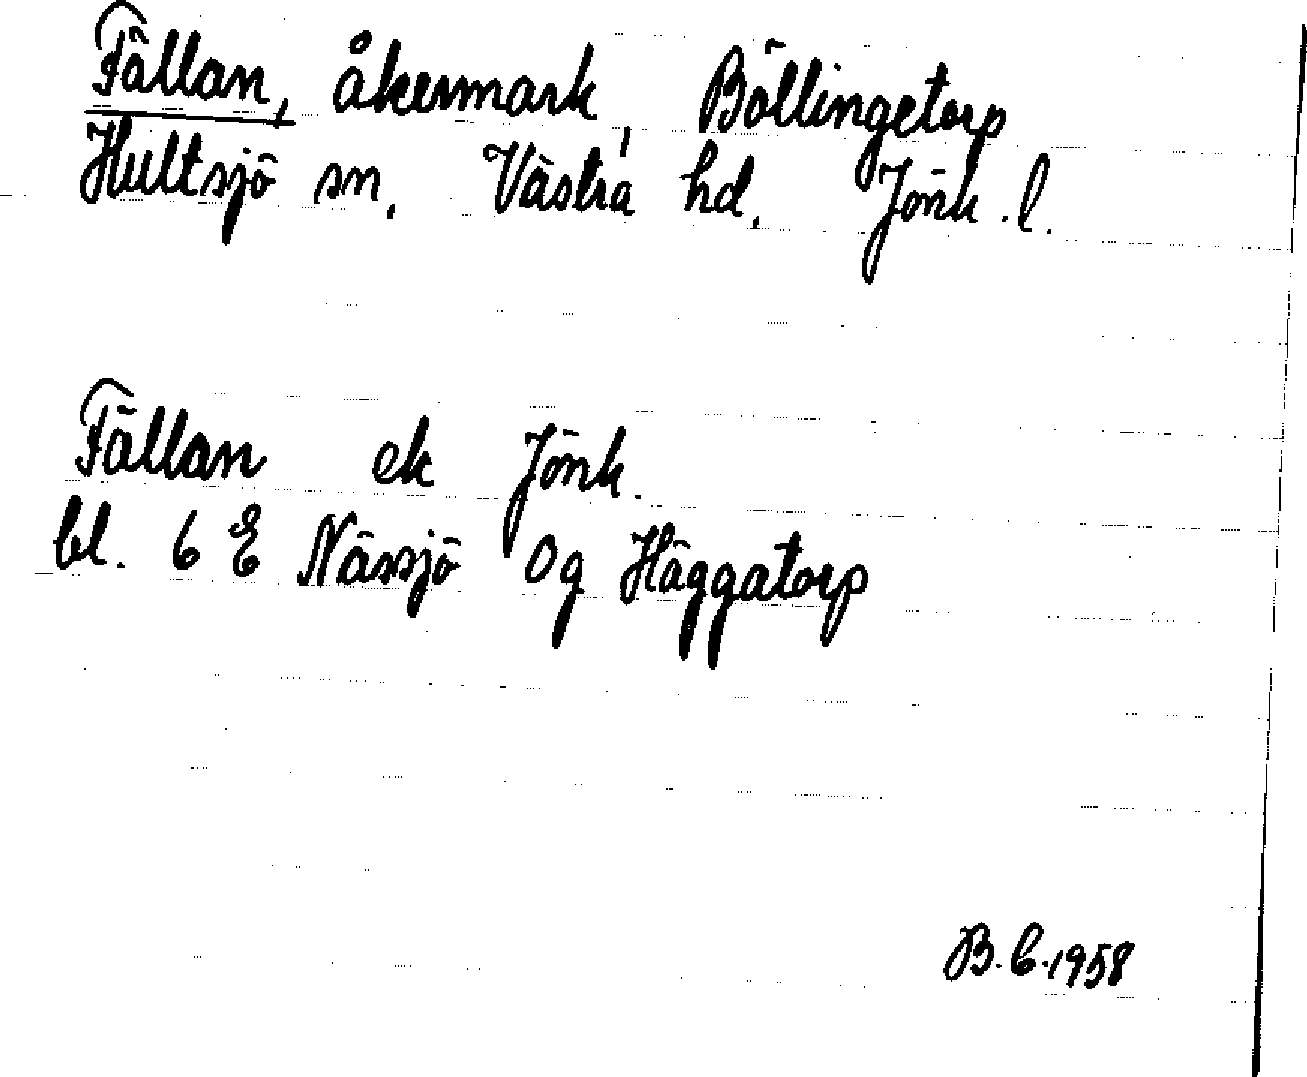 Fällan, åkermark, Böllingetorp
Hultsjö sn. Västra hd. Jönk. l.
Fällan ek Jönk.
bl. 6 E Nässjö 0g Häggatorp
B.C. 1958